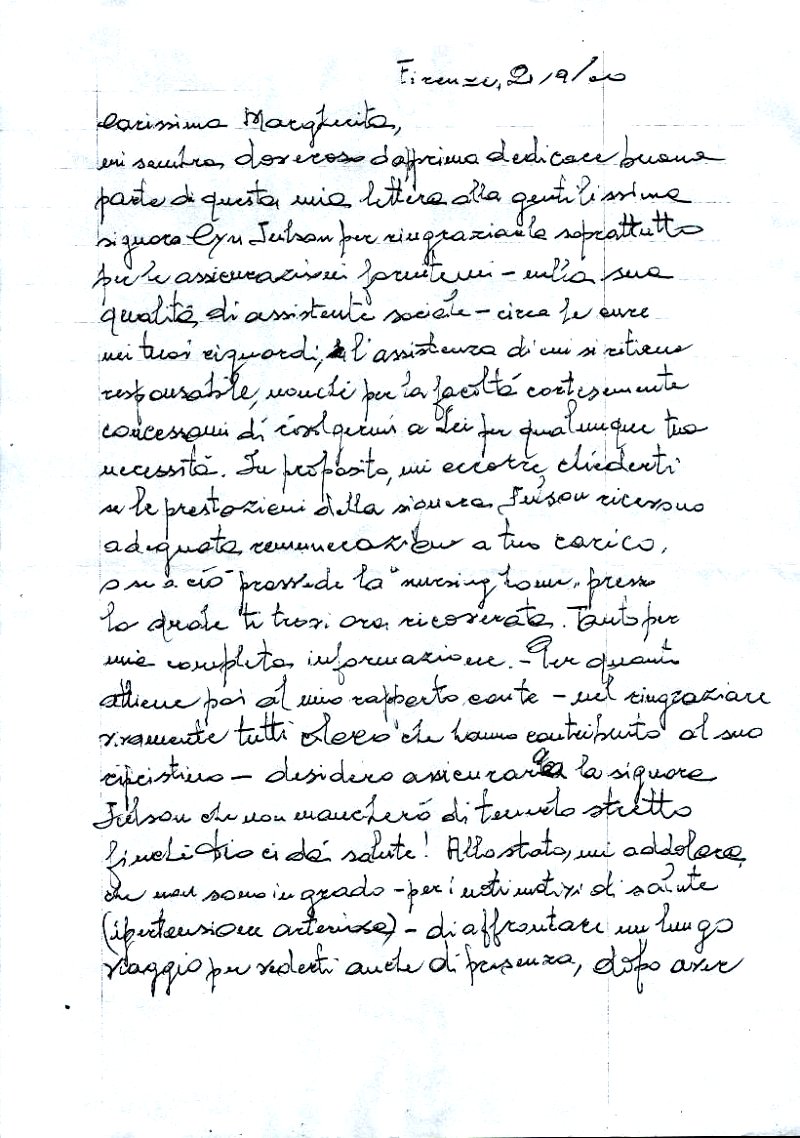 Firenze, 2/9/00
Carissima Margherita,
mi sembra doveroso dapprima dedicare buona
parte di questa mia lettera alla gentilissima
signora Lyn Julson per ringraziarla soprattutto
per le assicurazioni fornitemi – nella sua
qualità di assistente sociale – circa le cure
nei tuoi riguardi, l'assistenza di cui si ritiene
responsabile, nonché per la facoltà cortesemente
concessami di rivolgermi a Lei per qualunque tua
necessità. In proposito, mi occorre chiederti
se le prestazioni della signora Julson ricevono
adeguata remunerazione a tuo carico,
o se a ciò provvede la "nursing home" presso
la quale ti trovi ora ricoverata. Tanto per
mia completa informazione. – Per quanto
attiene poi al mio rapporto con te – nel ringraziare
vivamente tutti coloro che hanno contribuito al suo
ripristino – desidero assicurare la signora
Julson che non mancherò di tenerlo stretto
finché Dio ci dà salute! Allo stato, mi addolora
che non sono in grado – per i noti motivi di salute
(ipertensione arteriosa) – di affrontare un lungo
viaggio per vederti anche di presenza, dopo aver